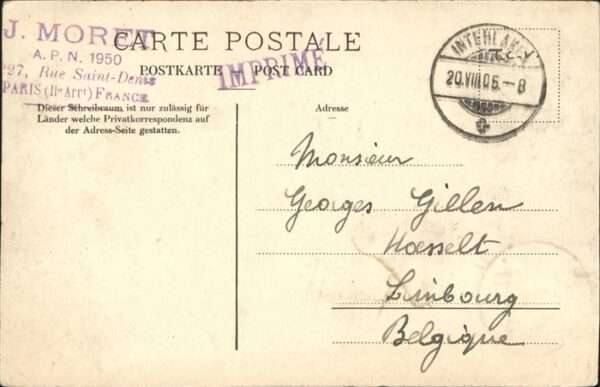 J. MORET
A. P. N. 1950
227, Rue Saint-Denis
PARIS (IIe Arrt) FRANCE
CARTE POSTALE
POSTKARTE POST CARD
IMPRIMÉ
INTERLAKEN
20.VIII.05.-8
Dieser Schreibraum ist nur zulässig für
Länder welche Privatkorrespondenz auf
der Adress-Seite gestatten.
Adresse
Monsieur
Georges Gillen
Hasselt
Limbourg
Belgique